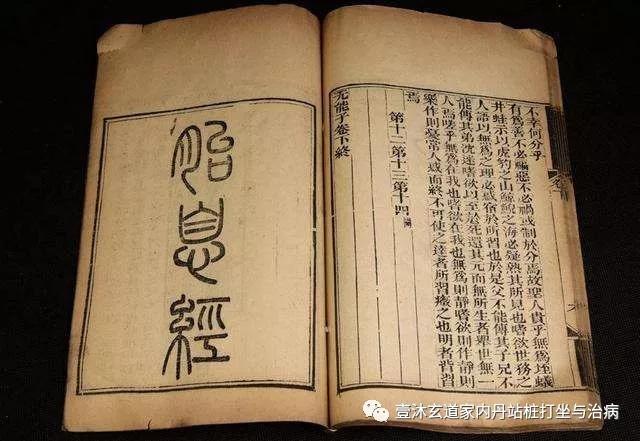 不幸何分乎
有爲善不必福惡不必禍或制於分焉故聖人貴乎無爲垤蟻
井蛙示以虎豹之山鯨鯢之海必疑熟其所見也嗜欲世務之
人語以無爲之理必惑宿於所習也於是父不能傳其子兄不
能傳其弟沈迷嗜欲以至於死還其元而無所生者舉世無一
人焉嗟乎無爲在我也嗜欲在我也無爲則靜嗜欲則作靜則
樂作則憂常人惑而終不可使之達者所習癈之也明者背習
焉
第十二第十三第十四闕
无能子卷下終
胎息經
壹沐玄道家内丹站桩打坐与治病